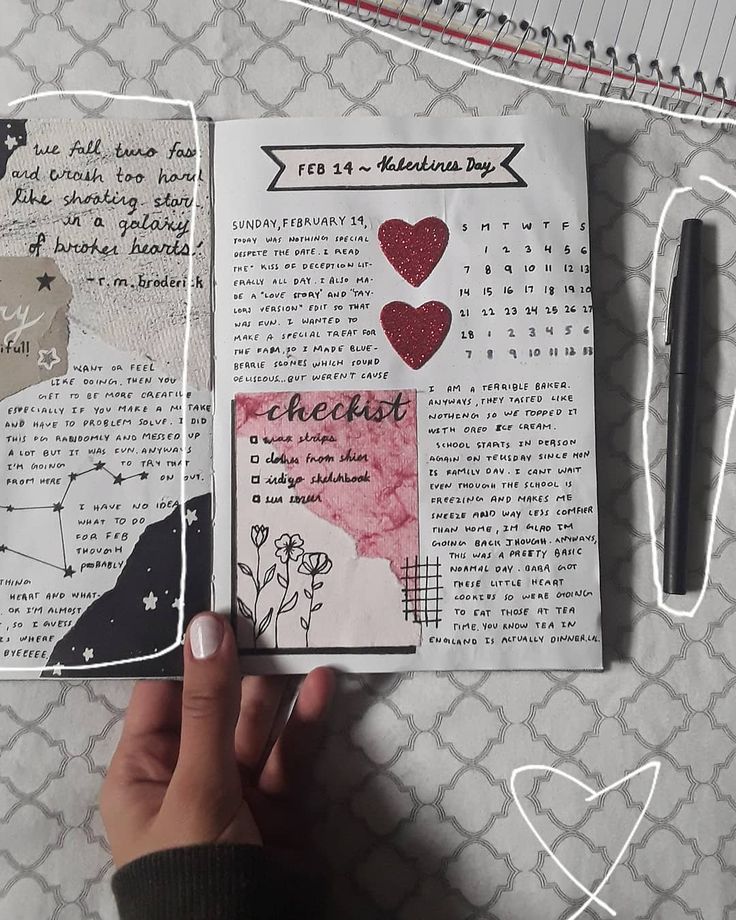 we fall two fast
and crash too hard
like shooting stars
in a galaxy
of broken hearts.
-r.m. broderick
ry
ifull
WANT OR FEEL
LIKE DOING. THEN YOU
GET TO BE MORE CREATIVE
ESPECIALLY IF YOU MAKE A MISTAKE
AND HAVE TO PROBLEM SOLVE. I DID
THIS PG RANDOMLY AND MESSED UP
A LOT BUT IT WAS FUN. ANYWAYS
I'M GOING TO TRY THAT
FROM HERE ON OUT.
I HAVE NO IDEA
WHAT TO DO
FOR FEB
THOUGH
PROBABLY
THING
HEART AND WHAT-
OK I'M ALMOST
, SO I GUESS
IS WHERE
BYEEEEE,
FEB 14 ~ Valentines Day
SUNDAY, FEBRUARY 14,
TODAY WAS NOTHING SPECIAL
DESPITE THE DATE. I READ
THE "KISS OF DECEPTION LIT-
ERALLY ALL DAY. I ALSO MA-
DE A "LOVE STORY" AND "TAY-
LORS VERSION" EDIT SO THAT
WAS FUN. I WANTED TO
MAKE A SPECIAL TREAT FOR
THE FAM, SO I MADE BLUE-
BERRIE SCONES WHICH SOUND
DELISCOUS...BUT WEREN'T CAUSE
S M T W T F S
1 2 3 4 5 6
7 8 9 10 11 12 13
14 15 16 17 18 19 20
21 22 23 24 25 26 27
28 1 2 3 4 5 6
7 8 9 10 11 12 13
checklist
wax strips
clothes from shien
indigo sketchbook
sun screen
I AM A TERRIBLE BAKER.
ANYWAYS, THEY TASTED LIKE
NOTHING SO WE TOPPED IT
WITH OREO ICE CREAM.
SCHOOL STARTS IN PERSON
AGAIN ON TEUSDAY SINCE MON
IS FAMILY DAY. I CANT WAIT
EVEN THOUGH THE SCHOOL IS
FREEZING AND MAKES ME
SNEEZE AND WAY LESS COMFIER
THAN HOME, IM GLAD IM
GOING BACK THOUGH. ANYWAYS,
THIS WAS A PRETTY BASIC
NORMAL DAY. BABA GOT
THESE LITTLE HEART
COOKIES SO WERE GOING
TO EAT THOSE AT TEA
TIME. YOU KNOW TEA IN
ENGLAND IS ACTUALLY DINNER.